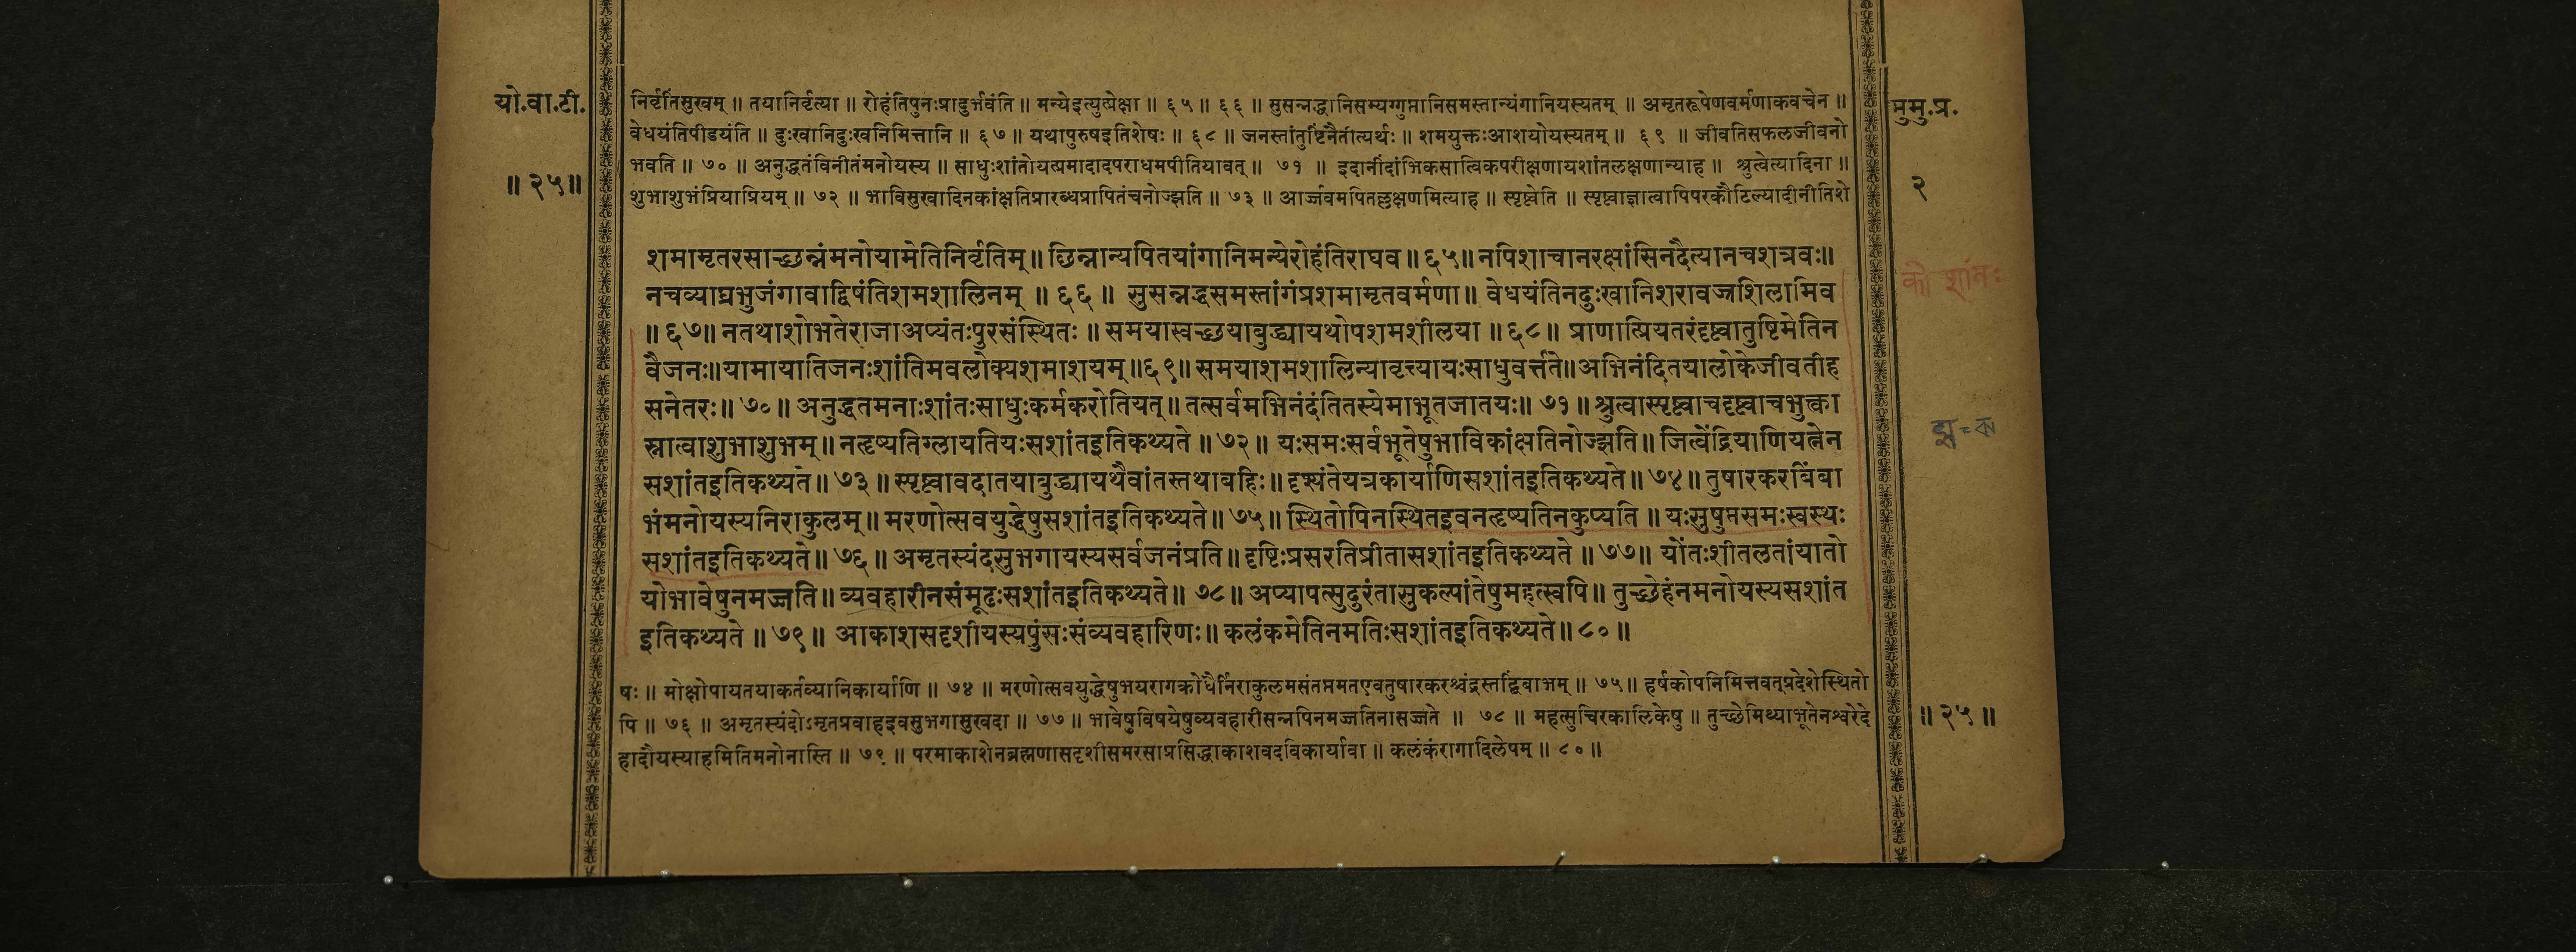 यो.वा.टी.
॥ २५॥
निर्वृतिसुखम् ॥ तयानिर्वृत्या ॥ रोहंतिपुनःप्रादुर्भवंति ॥ मन्येइत्युत्प्रेक्षा ॥ ६५ ॥ ६६ ॥ सुसन्नद्धानिसम्यग्गुप्तानिसमस्तान्यंगानियस्यतम् ॥ अमृतरूपेणवर्मणाकवचेन ॥
वेधयंतिपीडयंति ॥ दुःखानिदुःखनिमित्तानि ॥ ६७ ॥ यथापुरुषइतिशेषः ॥ ६८ ॥ जनस्तांतुष्टिंनैतीत्यर्थः ॥ शमयुक्तःआशयोयस्यतम् ॥ ६९ ॥ जीवतिसफलजीवनो
भवति ॥ ७० ॥ अनुद्धतंविनीतंमनोयस्य ॥ साधुःशांतोयत्प्रमादादपराधमपीतियावत् ॥ ७१ ॥ इदानींदांभिकसात्विकपरीक्षणायशांतलक्षणान्याह ॥ श्रुत्वेत्यादिना ॥
शुभाशुभंप्रियाप्रियम् ॥ ७२ ॥ भाविसुखादिनकांक्षतिप्रारब्धप्रापितंचनोज्झति ॥ ७३ ॥ आर्ज्जवमपितल्लक्षणमित्याह ॥ स्पृष्ट्वेति ॥ स्पृष्ट्वाज्ञात्वापिपरकौटिल्यादीनीतिशे
मुमु.प्र.
२
शमामृतरसाच्छन्नंमनोयामेतिनिर्वृतिम् ॥ छिन्नान्यपितयांगानिमन्येरोहंतिराघव ॥ ६५ ॥ नपिशाचानरक्षांसिनदैत्यानचशत्रवः॥
नचव्याघ्रभुजंगावाद्विषंतिशमशालिनम् ॥ ६६ ॥ सुसन्नद्धसमस्तांगंप्रशमामृतवर्मणा॥ वेधयंतिनदुःखानिशरावज्रशिलामिव
॥ ६७॥ नतथाशोभतेराजाअप्यंतःपुरसंस्थितः ॥ समयास्वच्छयाबुद्ध्यायथोपशमशीलया ॥ ६८॥ प्राणात्प्रियतरंदृष्ट्वातुष्टिमेतिन
वैजनः॥यामायातिजनःशांतिमवलोक्यशमाशयम्॥६९॥ समयाशमशालिन्यावृत्त्यायःसाधुवर्त्तते॥अभिनंदितयालोकेजीवतीह
सनेतरः॥ ७० ॥ अनुद्धतमनाःशांतःसाधुःकर्मकरोतियत्॥ तत्सर्वमभिनंदंतितस्येमाभूतजातयः॥ ७१ ॥ श्रुत्वास्पृष्ट्वाचदृष्ट्वाचभुक्त्वा
स्नात्वाशुभाशुभम्॥ नत्दृष्यतिग्लायतियःसशांतइतिकथ्यते ॥ ७२॥ यःसमःसर्वभूतेषुभाविकांक्षतिनोज्झति॥ जित्वेंद्रियाणियत्नेन
सशांतइतिकथ्यते॥ ७३ ॥ स्पृष्ट्वावदातयाबुद्ध्यायथैवांतस्तथाबहिः॥ दृश्यंतेयत्रकार्याणिसशांतइतिकथ्यते॥ ७४॥ तुषारकरबिंबा
भंमनोयस्यनिराकुलम्॥ मरणोत्सवयुद्धेषुसशांतइतिकथ्यते॥ ७५॥ स्थितोपिनस्थितइवनत्दृष्यतिनकुप्यति ॥ यःसुषुप्तसमःस्वस्थः
सशांतइतिकथ्यते॥ ७६ ॥ अमृतस्यंदसुभगायस्यसर्वजनंप्रति॥ दृष्टिःप्रसरतिप्रीतासशांतइतिकथ्यते ॥ ७७॥ योंतःशीतलतांयातो
योभावेषुनमज्जति॥ व्यवहारीनसंमूढःसशांतइतिकथ्यते॥ ७८॥ अप्यापत्सुदुरंतासुकल्पांतेषुमहत्स्वपि॥ तुच्छेहंनमनोयस्यसशांत
इतिकथ्यते ॥ ७९॥ आकाशसदृशीयस्यपुंसःसंव्यवहारिणः॥ कलंकमेतिनमतिःसशांतइतिकथ्यते॥ ८० ॥
को शांतः
षः ॥ मोक्षोपायतयाकर्तव्यानिकार्याणि ॥ ७४ ॥ मरणोत्सवयुद्धेषुभयरागक्रोधैर्निराकुलमसंतप्तमतएवतुषारकरश्चंद्रस्तद्बिंबाभम् ॥ ७५॥ हर्षकोपनिमित्तवत्प्रदेशेस्थितो
पि ॥ ७६ ॥ अमृतस्यंदोऽमृतप्रवाहइवसुभगासुखदा ॥ ७७ ॥ भावेषुविषयेषुव्यवहारीसन्नपिनमज्जतिनासज्जते ॥ ७८ ॥ महत्सुचिरकालिकेषु ॥ तुच्छेमिथ्याभूतेनश्वरेदे
हादौयस्याहमितिमनोनास्ति ॥ ७९ ॥ परमाकाशेनब्रह्मणासदृशीसमरसाप्रसिद्धाकाशवदविकार्यावा ॥ कलंकंरागादिलेपम् ॥ ८० ॥
॥ २५ ॥